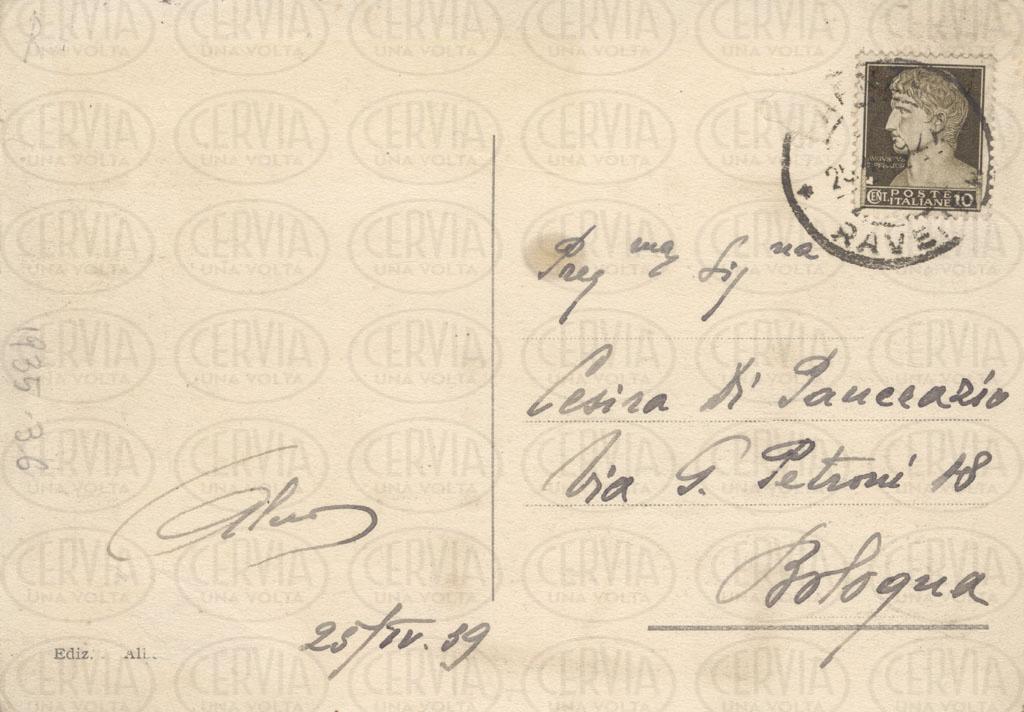 POSTE
CENT. ITALIANE 10
RAVE
Preg ma Sig na
Cesira Di Pancrazio
Via G. Petroni 18
Bologna
25/IV.39
Ediz. Ali
1935-36
CERVIA
UNA VOLTA